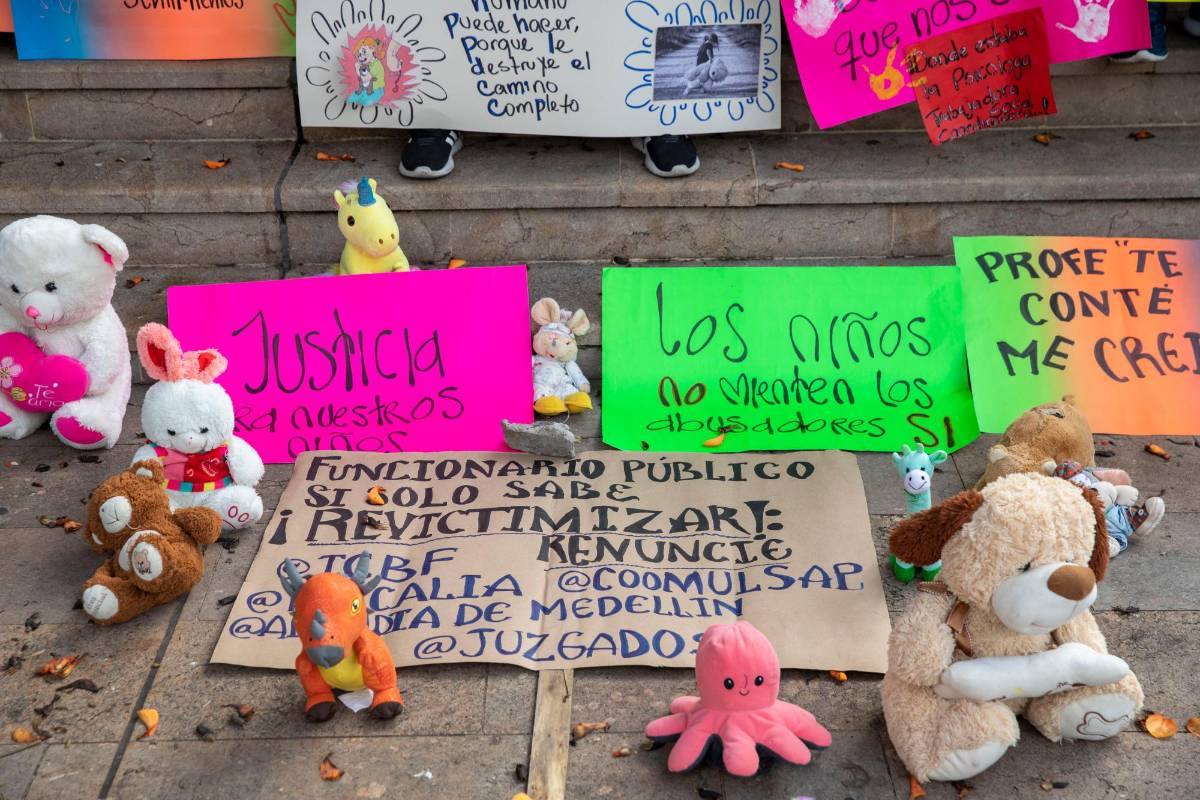 sentimientos
humano
Puede hacer,
Porque le
destruye el
camino
completo
que nos
Donde estaba
la Psicologa
Trabajadora
Social
Coordinadora
Te
amo
Justicia
ra nuestros
niños
Los niños
no mienten los
abusadores SI
PROFE "TE
CONTÉ
ME CREI
FUNCIONARIO PÚBLICO
SI SOLO SABE
¡REVICTIMIZAR!:
RENUNCIE
@ICBF
@COOMULSAP
CALIA
DIA DE MEDELLIN
@JUZGADOS